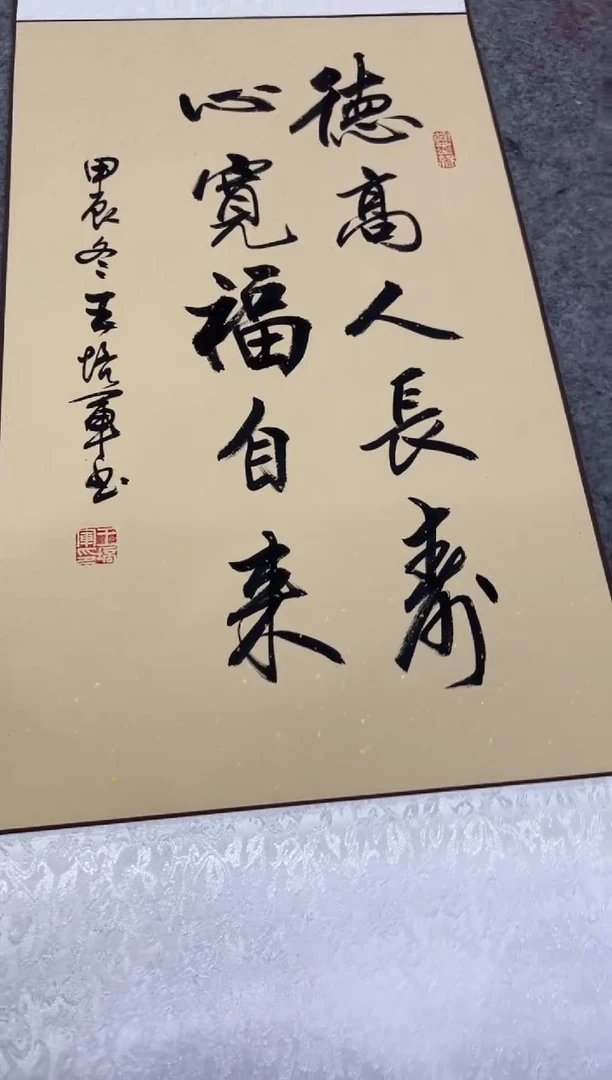 德高人長壽
心寬福自来
甲辰冬王培軍书